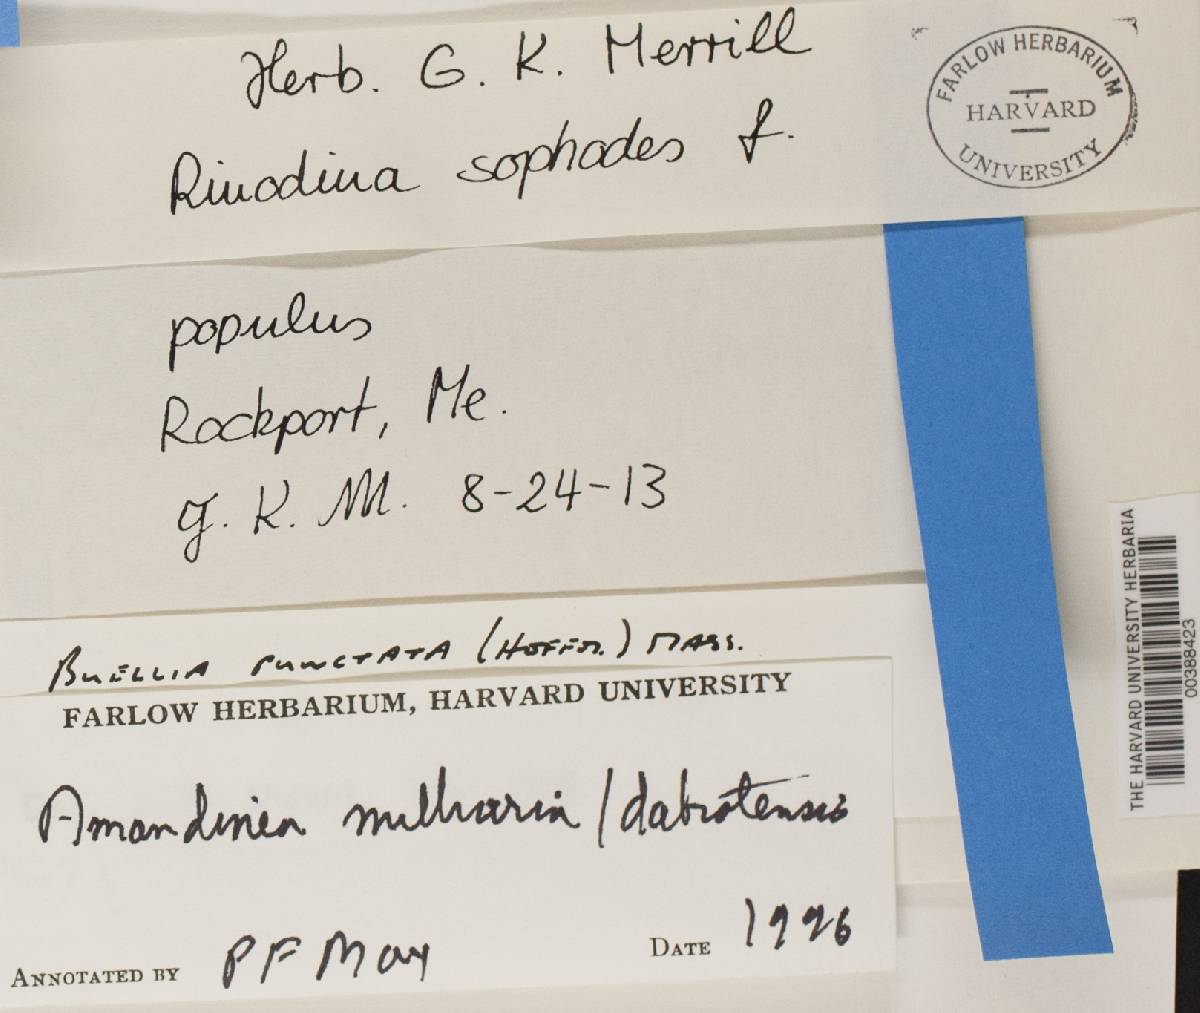 Herb. G. K. Merrill
Rinodina sophodes f.
FARLOW HERBARIUM
HARVARD
UNIVERSITY
populus
Rockport, Me.
G. K. M. 8-24-13
BUELLIA PUNCTATA (HOFFM.) MASS.
FARLOW HERBARIUM, HARVARD UNIVERSITY
Amandinea milliaria / dakotensis
ANNOTATED BY PF May DATE 1996
THE HARVARD UNIVERSITY HERBARIA
00388423